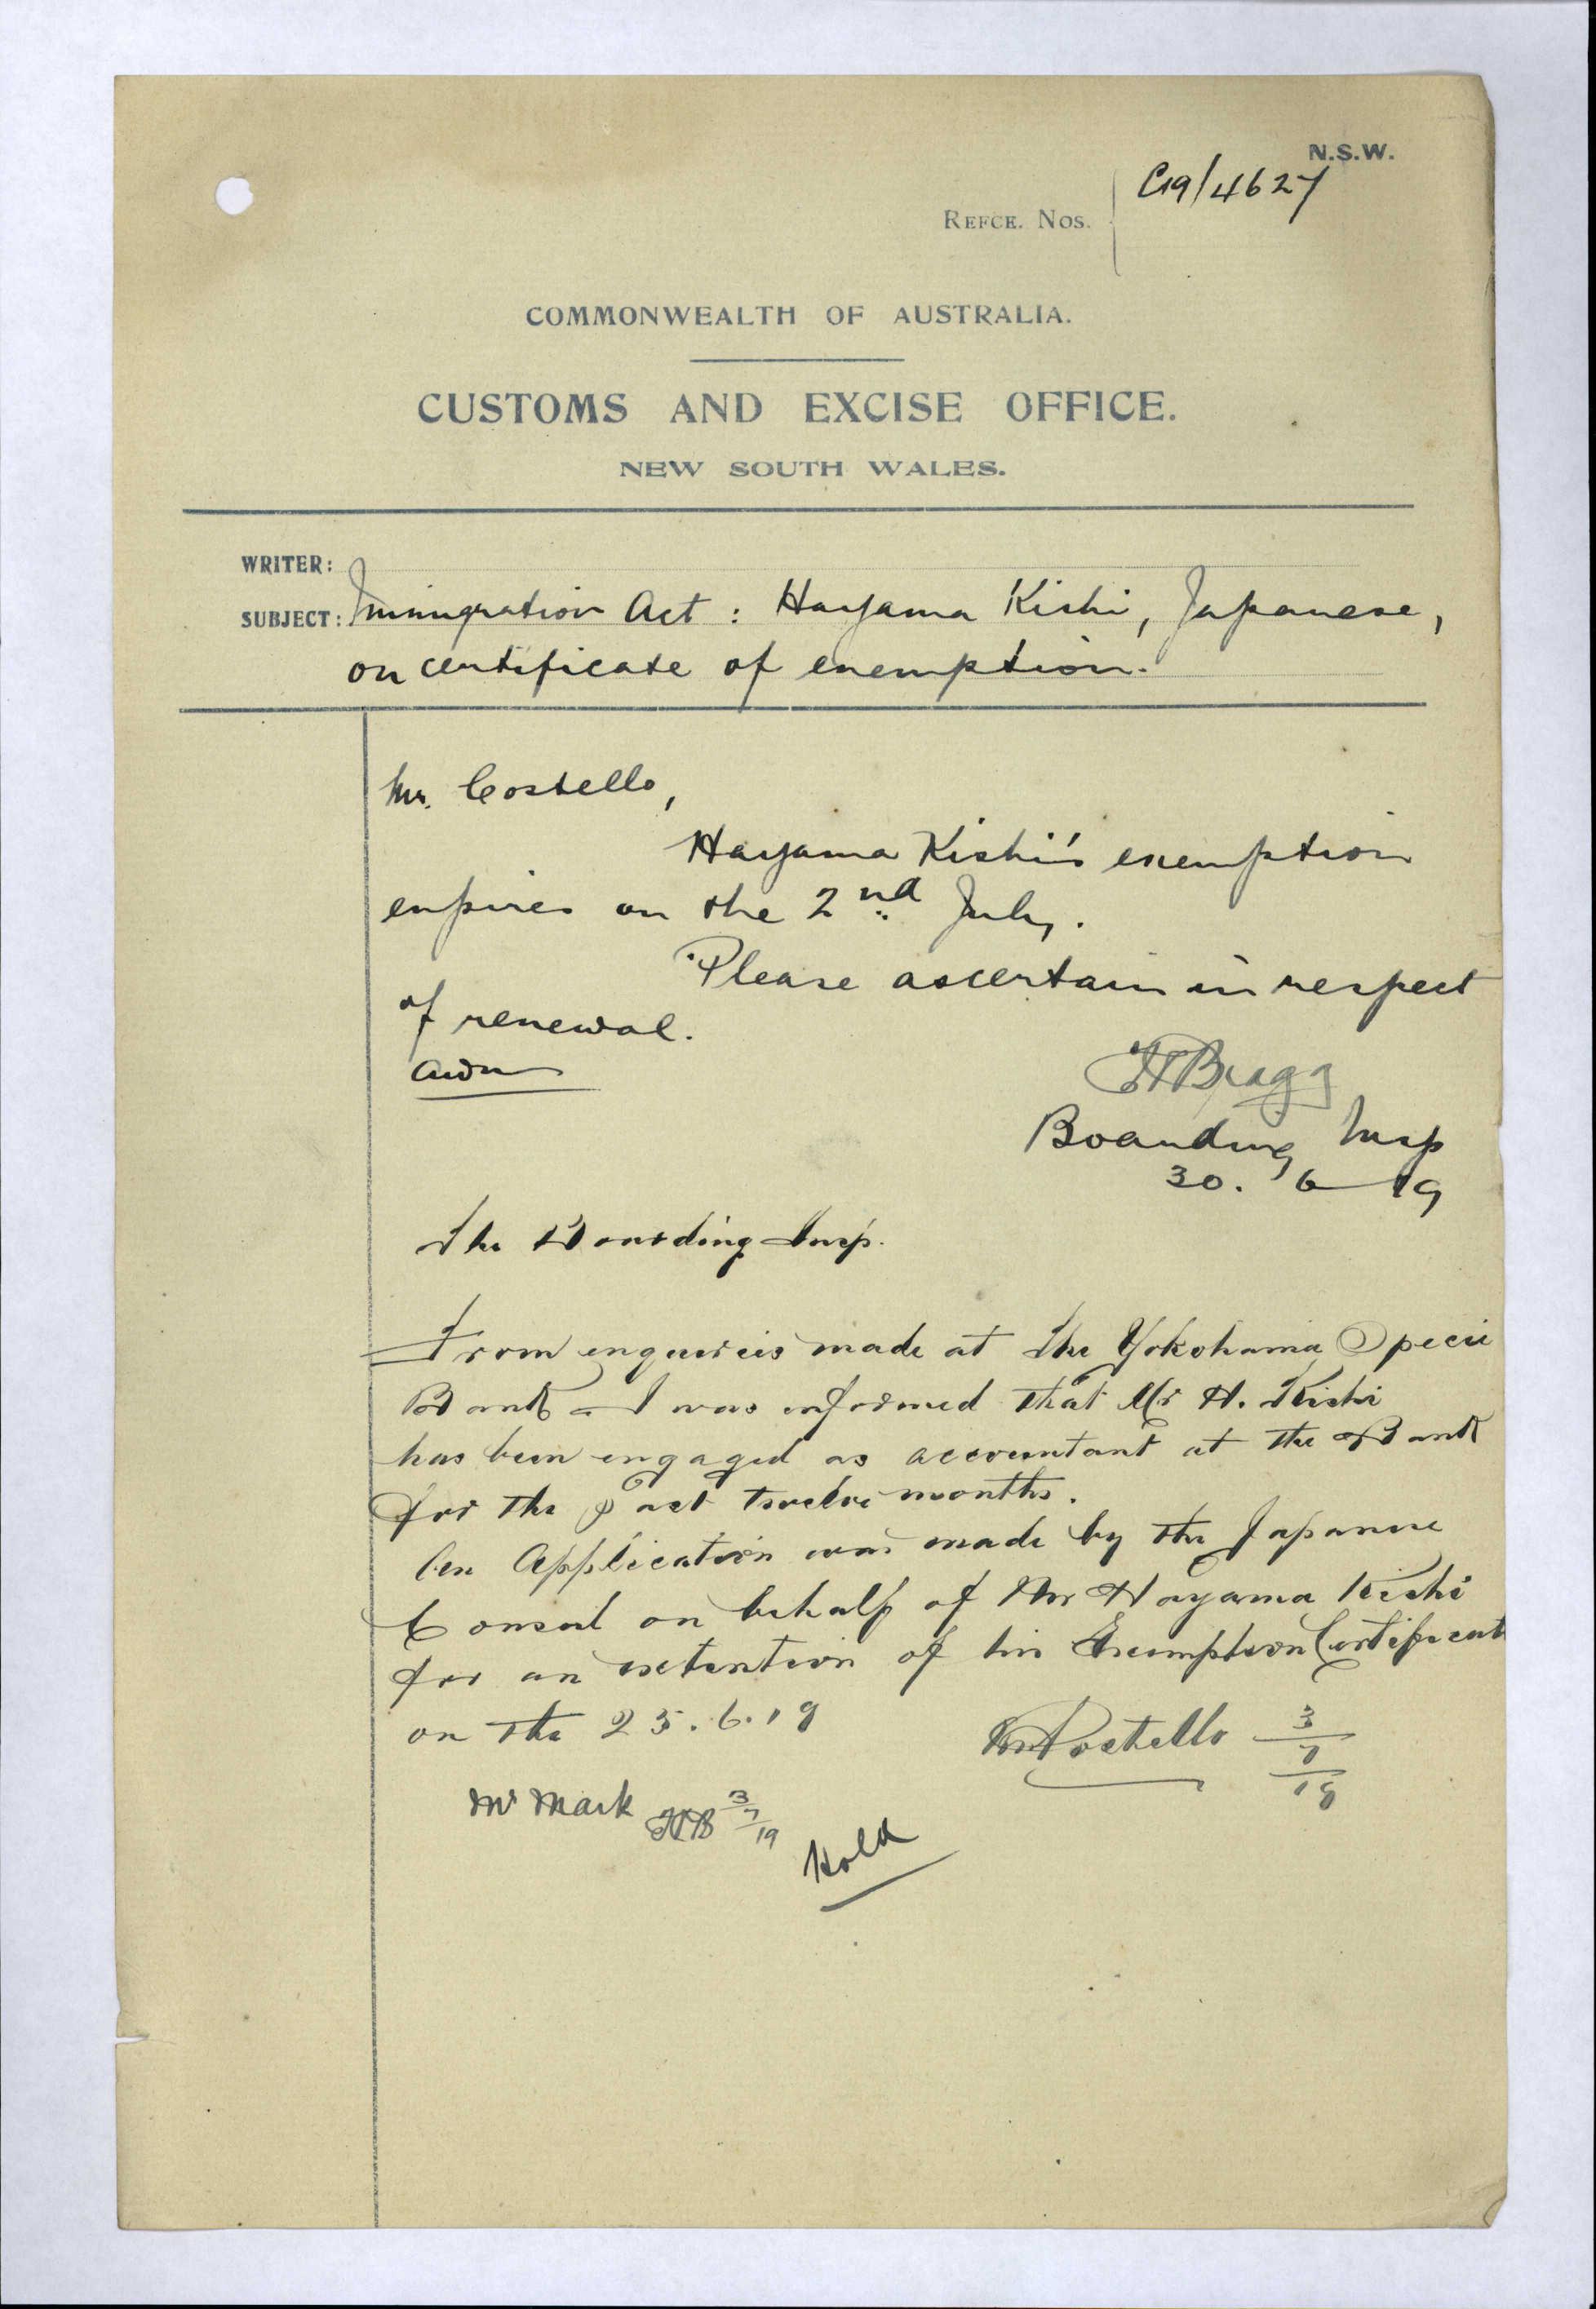 N.S.W.
C19/4627
REFCE. NOS.
COMMONWEALTH OF AUSTRALIA.
CUSTOMS AND EXCISE OFFICE.
NEW SOUTH WALES.
WRITER:
SUBJECT: Immigration Act : Hayama Kishi, Japanese,
on certificate of exemption.
Mr. Costello,
Hayama Kishi's exemption
expires on the 2nd July.
Please ascertain in respect
of renewal.
Bragg
Boarding Insp
30. 6 19
The Boarding Insp.
From enquiries made at the Yokohama Specie
Bank I was informed that Mr H. Kishi
has been engaged as accountant at the Bank
for the past twelve months.
An Application was made by the Japanese
Consul on behalf of Mr Hayama Kishi
for an extention of his Exemption Certificate
on the 25.6.19
Costello 3/7/19
Mr Mark
3/7/19
Hold